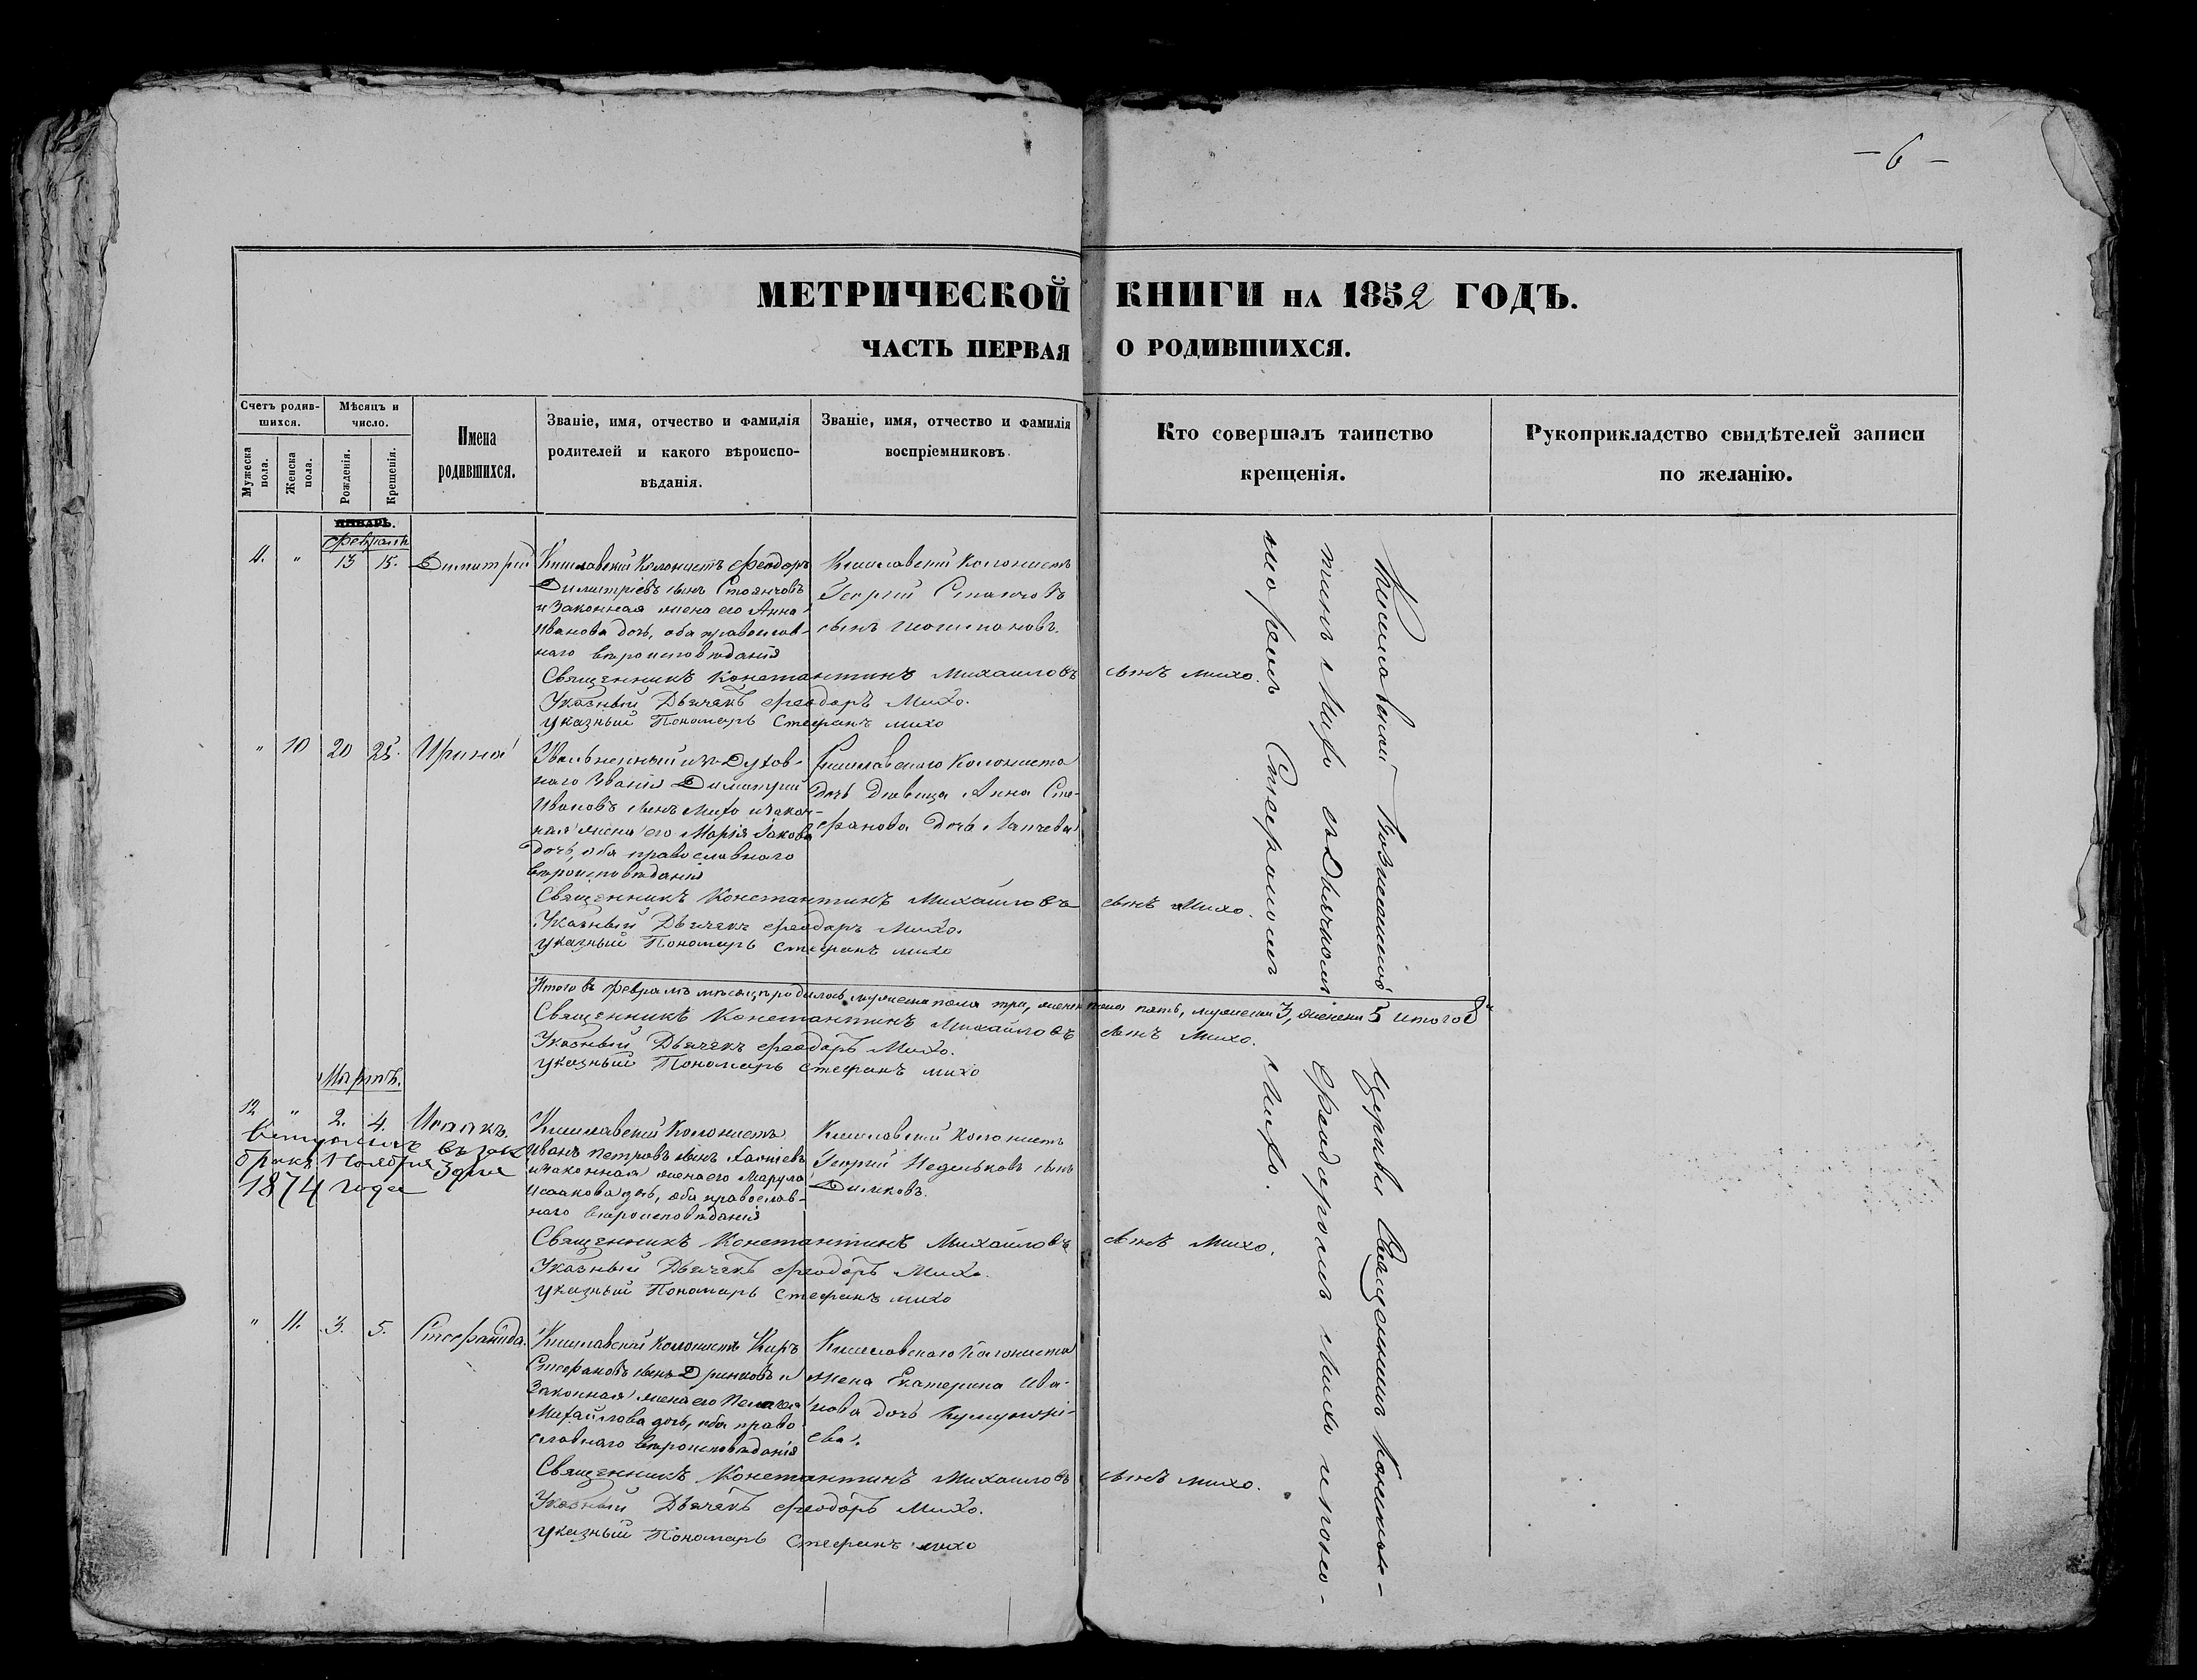 – 6 –
МЕТРИЧЕСКОЙ КНИГИ НА 1852 ГОДЪ.
ЧАСТЬ ПЕРВАЯ О РОДИВШИХСЯ.
Счетъ родив-
шихся.
Мужеска пола.
Женска пола.
Мѣсяцъ и
число.
Рожденія.
Крещенія.
Имена
родившихся.
Званіе, имя, отчество и фамилія
родителей и какого вѣроиспо-
вѣданія.
Званіе, имя, отчество и фамилія
воспріемниковъ.
Кто совершалъ таинство
крещенія.
Рукоприкладство свидѣтелей записи
по желанію.
ЯНВАРЬ.
Февраль
" 13 15. Димитрій
Кишлавскій Колонистъ Феодоръ
Димитріевъ сынъ Стоянчовъ
и законная жена его Анна
Иванова дочь, оба православ-
наго вѣроисповѣданія
Кишлавскій Колонистъ
Георгій
сынъ
Священникъ Константинъ Михаиловъ сынъ Михо.
Указный Дьячекъ Феодоръ Михо.
указный Пономарь Стефанъ Михо
" 10 20 25. Ирина
Уволненный изъ Духов-
наго званія Димитрій
Ивановъ сынъ Михо и закон-
ная жена его Марія Іакова
дочь, оба православнаго
вѣроисповѣданія
Кишлавскаго Колониста
дочь дѣвица Анна Сте-
фанова дочь
Священникъ Константинъ Михайловъ сынъ Михо.
Указный Дьячекъ Феодоръ Михо.
указный Пономарь Стефанъ Михо
Итого въ Февралѣ мѣсяцѣ родилось мужеска пола три, женска пола пять, мужеска 3, женска 5 итого 8
Священникъ Константинъ Михайловъ сынъ Михо.
Указный Дьячекъ Феодоръ Михо.
указный Пономарь Стефанъ Михо
Мартъ.
12 " 2. 4. Исаакъ.
Вступилъ въ зак
бракъ Ноября 3 дня
1874 года
Кишлавскій Колонистъ
Иванъ Петровъ сынъ
и законная жена его Марула
Исаакова дочь, оба православ-
наго вѣроисповѣданія
Кишлавскій Колонистъ
Георгій Недельковъ сынъ
Димковъ.
Священникъ Константинъ Михайловъ сынъ Михо.
Указный Дьячекъ Феодоръ Михо.
указный Пономарь Стефанъ Михо
" 11. 3. 5. Стефанида.
Кишлавскій Колонистъ Киръ
Стефановъ сынъ Дринковъ и
законная жена его Пелагея
Михайлова дочь, оба право-
славнаго вѣроисповѣданія
Кишлавскаго Колониста
жена Екатерина Ива-
нова дочь
Священникъ Константинъ Михаиловъ сынъ Михо.
Указный Дьячекъ Феодоръ Михо.
указный Пономарь Стефанъ Михо
Кишлавской Вознесенской церкви Священникъ Констан-
тинъ Михо съ Дьячкомъ Феодоромъ Михо и Поно-
маремъ Стефаномъ Михо.